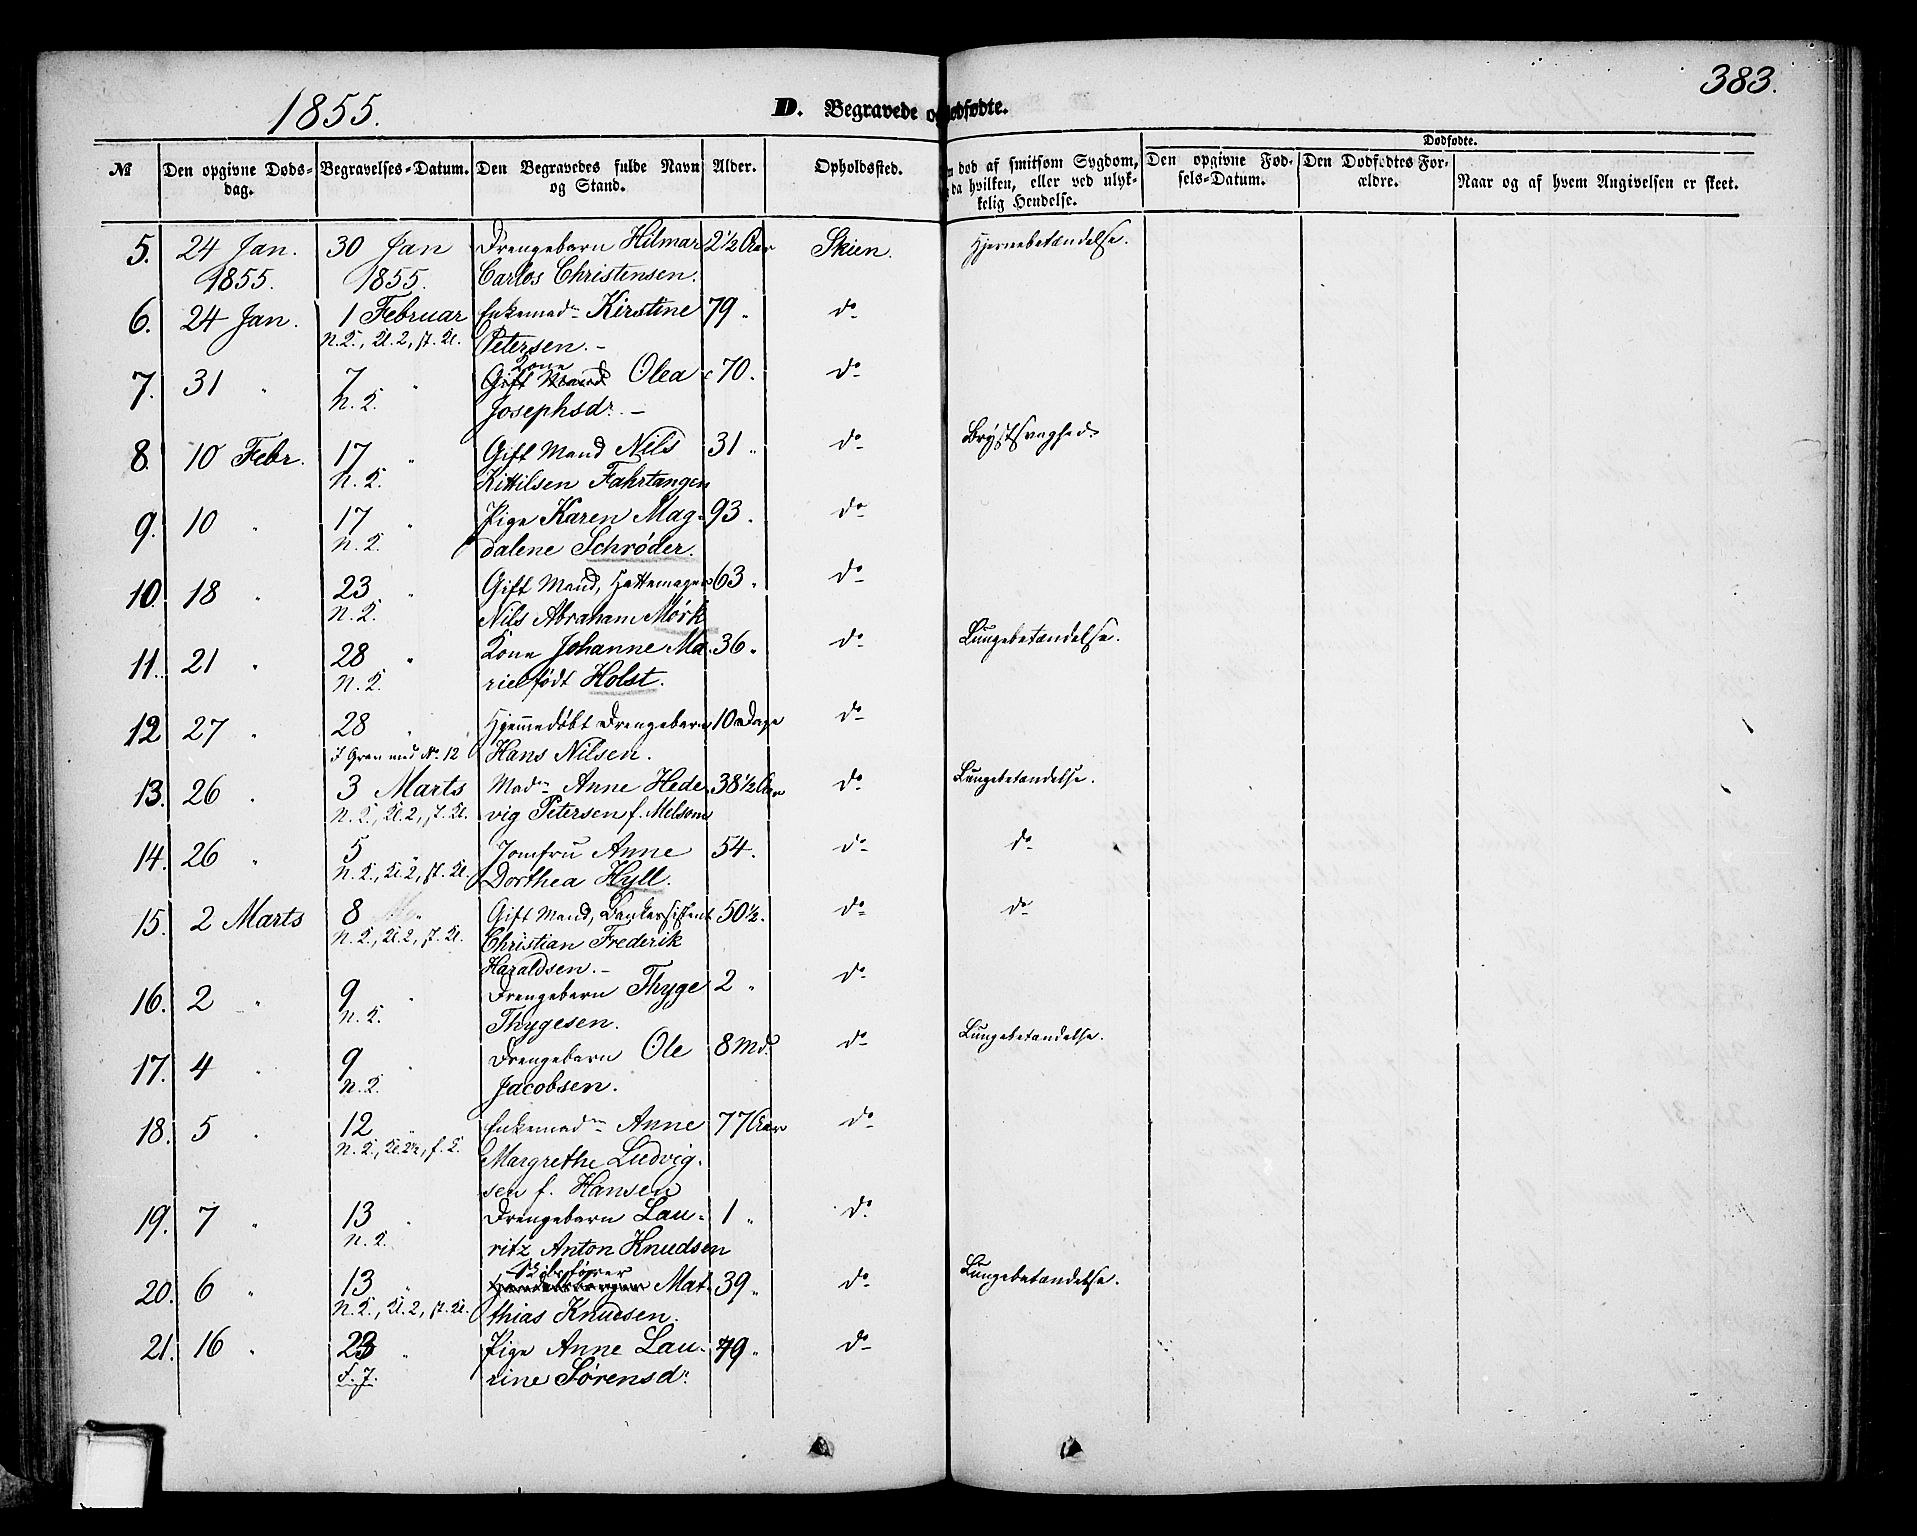 383.
1855.
D. Begravede og Dødfødte.
Dødfødte.
№ Den opgivne Døds-dag. Begravelses-Datum. Den Begravedes fulde Navn og Stand. Alder. Opholdssted. død af smitsom Sygdom, da hvilken, eller ved ulyk-kelig Hendelse. Den opgivne Fød-sels-Datum. Den Dødfødtes For-ældre. Naar og af hvem Angivelsen er skeet.
5. 24 Jan. 30 Jan Drengebarn Hilmar 2½ Aar Skien. Hjernebetændelse.
1855. 1855. Carlos Christensen.
6. 24 Jan. 1 Februar Enkemadm Kirstine 79 " do
N.K., Kl. 2, st. Kl. Petersen. –
Kone
7. 31 " 7 " Gift Mand Olea c 70. do
N.K. Josephsdr. –
8. 10 Febr. 17 " Gift Mand Nils 31 " do Brystsvaghed.
N.K. Kittilsen Fahrtangen
9. 10 " 17 " Pige Karen Mag- 93. do
N.K. dalene Schrøder.
10. 18 " 23 " Gift Mand, Hattemager 63 " do
N.K. Nils Abraham Mørk
11. 21 " 28 " Kone Johanne Ma- 36 " do Lungebetændelse.
N.K. rie født Holst.
12 27 " 28 " Hjemmedøbt Drengebarn 10 Dage do
i Grav med No. 12 Hans Nilsen.
13. 26 " 3 Marts Madm Anne Hede- 38½ Aar do Lungebetændelse.
N.K., Kl. 2, st. Kl. vig Petersen f. Melsom
14. 26 " 5 " Jomfru Anne 54. do do
N.K., Kl. 2, st. Kl. Dorthea Hyll.
15. 2 Marts 8 " Gift Mand, Bankassistent 50½. do do
N.K., Kl. 2, st. Kl. Christian Frederik
Haraldsen. –
16. 2 " 9 " Drengebarn Thyge 2 " do
N.K. Thygesen.
17. 4 " 9 " Drengebarn Ole 8 Md. do Lungebetændelse.
N.K. Jacobsen.
18. 5 " 12 " Enkemadm Anne 77 Aar do
N.K., Kl. , f. K. Margrethe Ludvig-
sen f. Hansen
19. 7 " 13 " Drengebarn Lau- 1 " do
N.K. ritz Anton Knudsen
20. 6 " 13 " Mat- 39 " do Lungebetændelse.
N.K., Kl. 2, st. Kl. thias Knudsen.
21. 16 " 23 " Pige Anne Lau- 49 " do
F. J. rine Sørensdr.